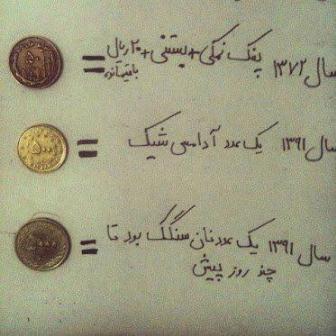 سال ۱۳۷۲ پفک نمکی + بستنی + ۲۰ ریال
باقیمانده
=
۵۰
سال ۱۳۹۱ یک عدد آدامس شیک
=
۵۰۰
سال ۱۳۹۱ یک عدد نان سنگک بود تا
چند روز پیش
=